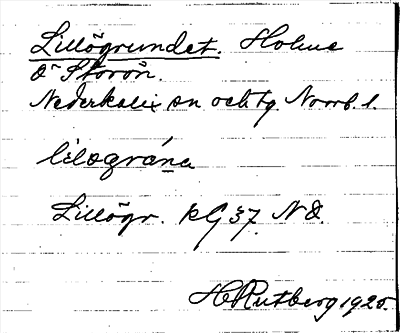 Lillögrundet. Holme
O Storön.
Nederkalix sn och tg. Norrb. l.
lìlagrána
Lillögr. kG 37 NO.
H Rutberg 1925.